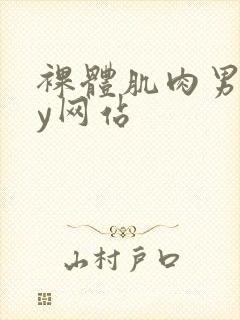 裸體肌肉男
y网佔
山村戶口